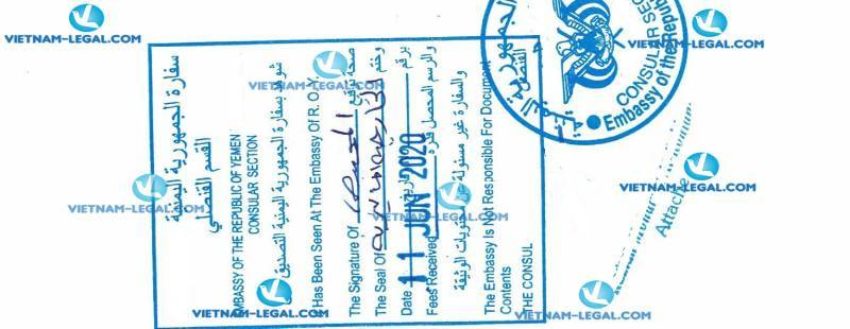 سفارة الجمهورية اليمنية
القسم القنصلي
EMBASSY OF THE REPUBLIC OF YEMEN
CONSULAR SECTION
شوهد بسفارة الجمهورية اليمنية التصديق على
Has Been Seen At The Embassy Of R. O. Y.
صحة توقيع
The Signature Of
وختم
The Seal Of
برقم
Date 11 JUN 2020
والرسم المحصل قدره
Fees Received
والسفارة غير مسئولة عن محتويات الوثيقة
The Embassy Is Not Responsible For Document
Contents
THE CONSUL
الجمهورية اليمنية
القنصلية
CONSULAR SEC
Embassy of the Repub
Attache
VIETNAM-LEGAL.COM
VIETNAM-LEGAL.COM
VIETNAM-LEGAL.COM
VIETNAM-LEGAL.COM
VIETNAM-LEGAL.COM
VIETNAM-LEGAL.COM
VIETNAM-LEGAL.COM
VIETNAM-LEGAL.COM